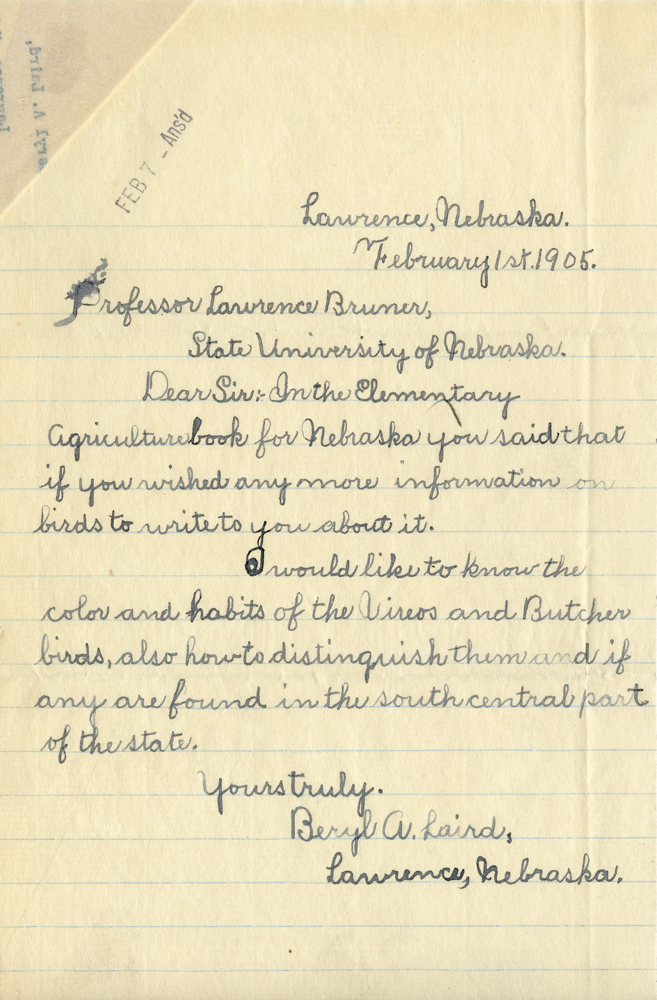 FEB 7 - Ans'd
Lawrence, Nebraska.
February 1st. 1905.
Professor Lawrence Bruner,
State University of Nebraska.
Dear Sir:- In the Elementary
Agriculture book for Nebraska you said that
if you wished any more information on
birds to write to you about it.
I would like to know the
color and habits of the Vireos and Butcher
birds, also how to distinguish them and if
any are found in the south central part
of the state.
Yours truly.
Beryl A. Laird,
Lawrence, Nebraska.